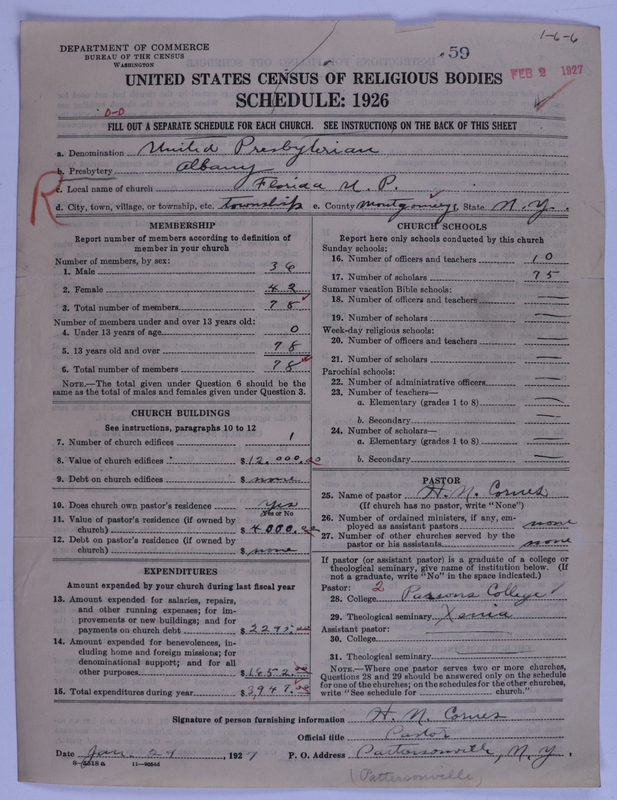 1-6-6
DEPARTMENT OF COMMERCE
BUREAU OF THE CENSUS
WASHINGTON
59
UNITED STATES CENSUS OF RELIGIOUS BODIES
FEB 2 1927
SCHEDULE: 1926
0-0
FILL OUT A SEPARATE SCHEDULE FOR EACH CHURCH. SEE INSTRUCTIONS ON THE BACK OF THIS SHEET
a. Denomination United Presbyterian
b. Presbytery Albany
R
c. Local name of church Florida U. P.
d. City, town, village, or township, etc. township e. County Montgomery, State N. Y.
MEMBERSHIP
Report number of members according to definition of
member in your church
Number of members, by sex:
1. Male 36
2. Female 42
3. Total number of members 78
Number of members under and over 13 years old:
4. Under 13 years of age 0
5. 13 years old and over 78
6. Total number of members 78
NOTE.—The total given under Question 6 should be the
same as the total of males and females given under Question 3.
CHURCH BUILDINGS
See instructions, paragraphs 10 to 12
7. Number of church edifices 1
8. Value of church edifices $12,000.00
9. Debt on church edifices $ none
10. Does church own pastor's residence Yes
(Yes or No)
11. Value of pastor's residence (if owned by
church) $4000.00
12. Debt on pastor's residence (if owned by
church) $ none
EXPENDITURES
Amount expended by your church during last fiscal year
13. Amount expended for salaries, repairs,
and other running expenses; for im-
provements or new buildings; and for
payments on church debt $2295.00
14. Amount expended for benevolences, in-
cluding home and foreign missions; for
denominational support; and for all
other purposes $1652.00
15. Total expenditures during year $3947.00
CHURCH SCHOOLS
Report here only schools conducted by this church
Sunday schools:
16. Number of officers and teachers 10
17. Number of scholars 75
Summer vacation Bible schools:
18. Number of officers and teachers —
19. Number of scholars —
Week-day religious schools:
20. Number of officers and teachers —
21. Number of scholars —
Parochial schools:
22. Number of administrative officers —
23. Number of teachers—
a. Elementary (grades 1 to 8) —
b. Secondary —
24. Number of scholars—
a. Elementary (grades 1 to 8) —
b. Secondary —
PASTOR
25. Name of pastor H. N. Cornes
(If church has no pastor, write "None")
26. Number of ordained ministers, if any, em-
ployed as assistant pastors none
27. Number of other churches served by the
pastor or his assistants none
If pastor (or assistant pastor) is a graduate of a college or
theological seminary, give name of institution below. (If
not a graduate, write "No" in the space indicated.)
Pastor: 2
28. College Parsons College
29. Theological seminary Xenia
Assistant pastor:
30. College
31. Theological seminary
NOTE.—Where one pastor serves two or more churches,
Questions 28 and 29 should be answered only on the schedule
for one of the churches; on the schedules for the other churches,
write "See schedule for church."
Signature of person furnishing information H. N. Cornes
Official title Pastor
Date Jan. 29 1927 P. O. Address Pattersonville, N. Y.
11—90545
(Pattersonville)